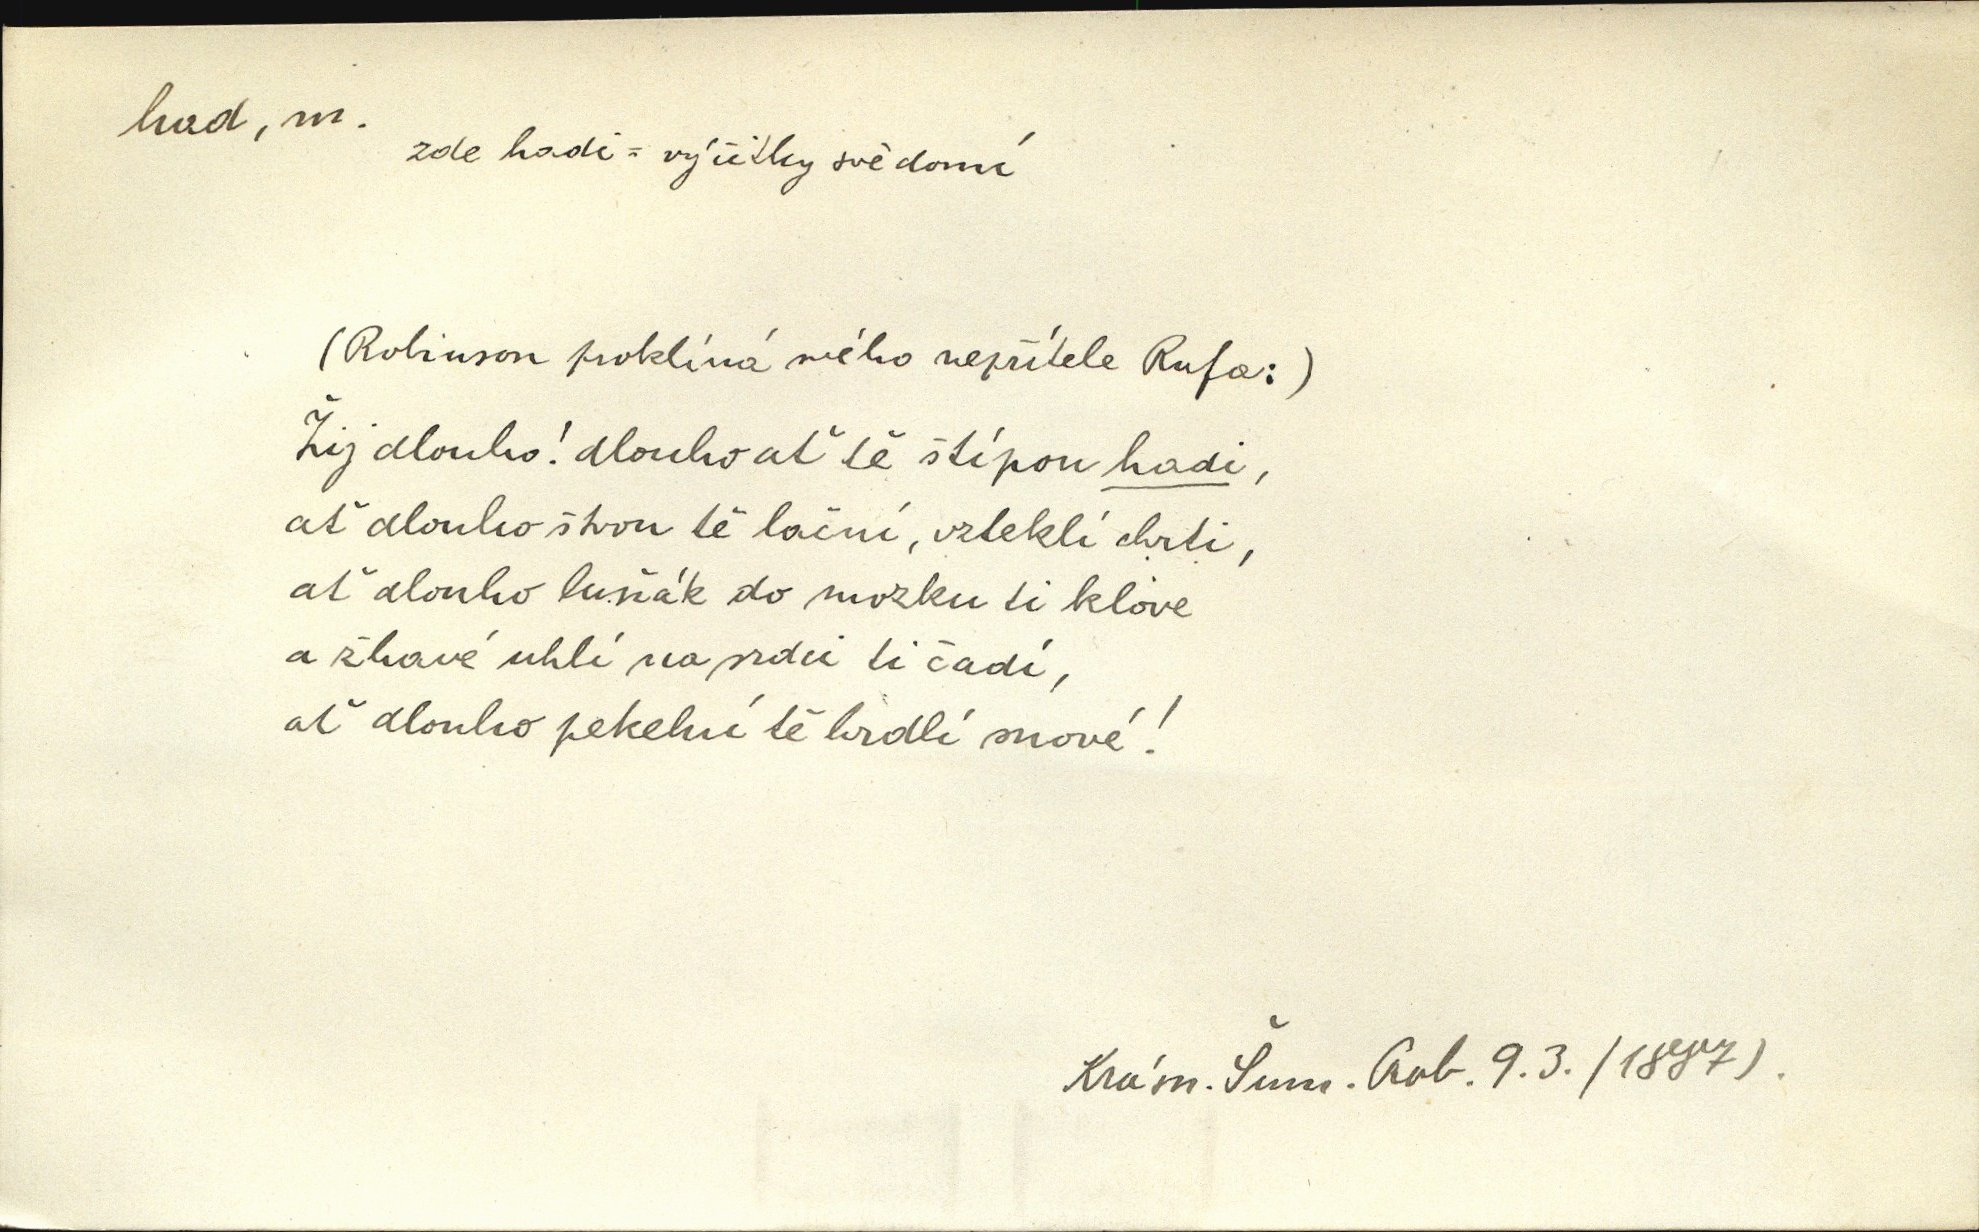 had, m.
zde hadi = výčitky svědomí
(Robinson proklíná svého nepřítele Rufa:)
Žij dlouho! dlouho ať tě štípou hadi,
ať dlouho štvou tě lační, vzteklí chrti,
ať dlouho luňák do mozku ti klove
a žhavé uhlí na srdci ti čadí,
ať dlouho pekelní tě hrdlí snové!
Krásn. Šum. Rob. 9.3. (1887).